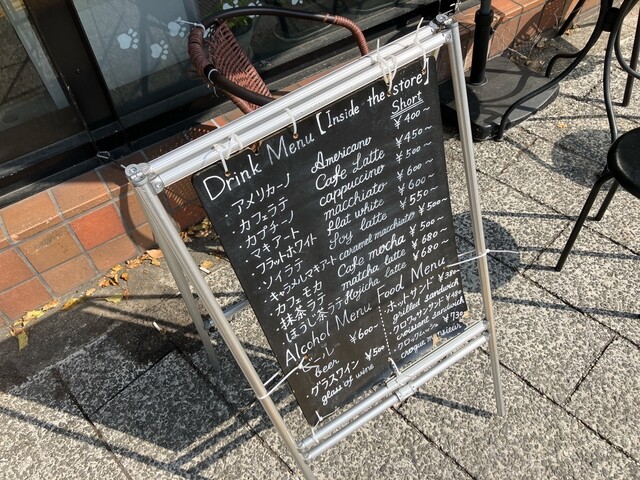 Drink Menu [Inside the store]
Short
・アメリカーノ Americano ¥400~
・カフェラテ Cafe Latte ¥450~
・カプチーノ cappuccino ¥500~
・マキアート macchiato ¥600~
・フラットホワイト flat white ¥600~
・ソイラテ Soy latte ¥550~
・キャラメルマキアート caramel macchiato ¥500~
・カフェモカ Cafe mocha ¥500~
・抹茶ラテ matcha latte ¥680~
・ほうじ茶ラテ Hojicha latte ¥680~
Alcohol Menu
・ビール ¥600~
beer
・グラスワイン ¥500
glass of wine
Food Menu
・ホットサンド ¥380~
grilled sandwich
・クロワッサンサンド
croissant sandwich
¥730
croque monsieur